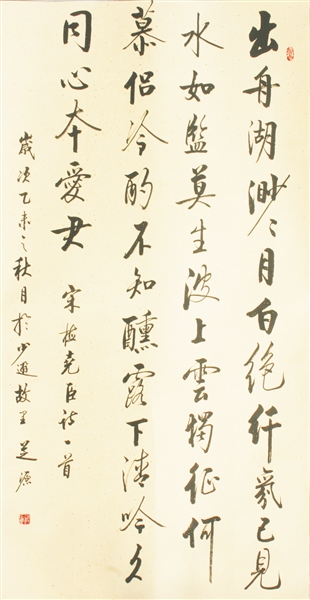 出舟湖渺渺月白絶纤氛已見
水如監莫生波上雲獨征何
慕侶冷酌不知醺露下清吟久
同心本愛君 宋梅堯臣詩一首
歲次乙未之秋月於少遊故里芝源